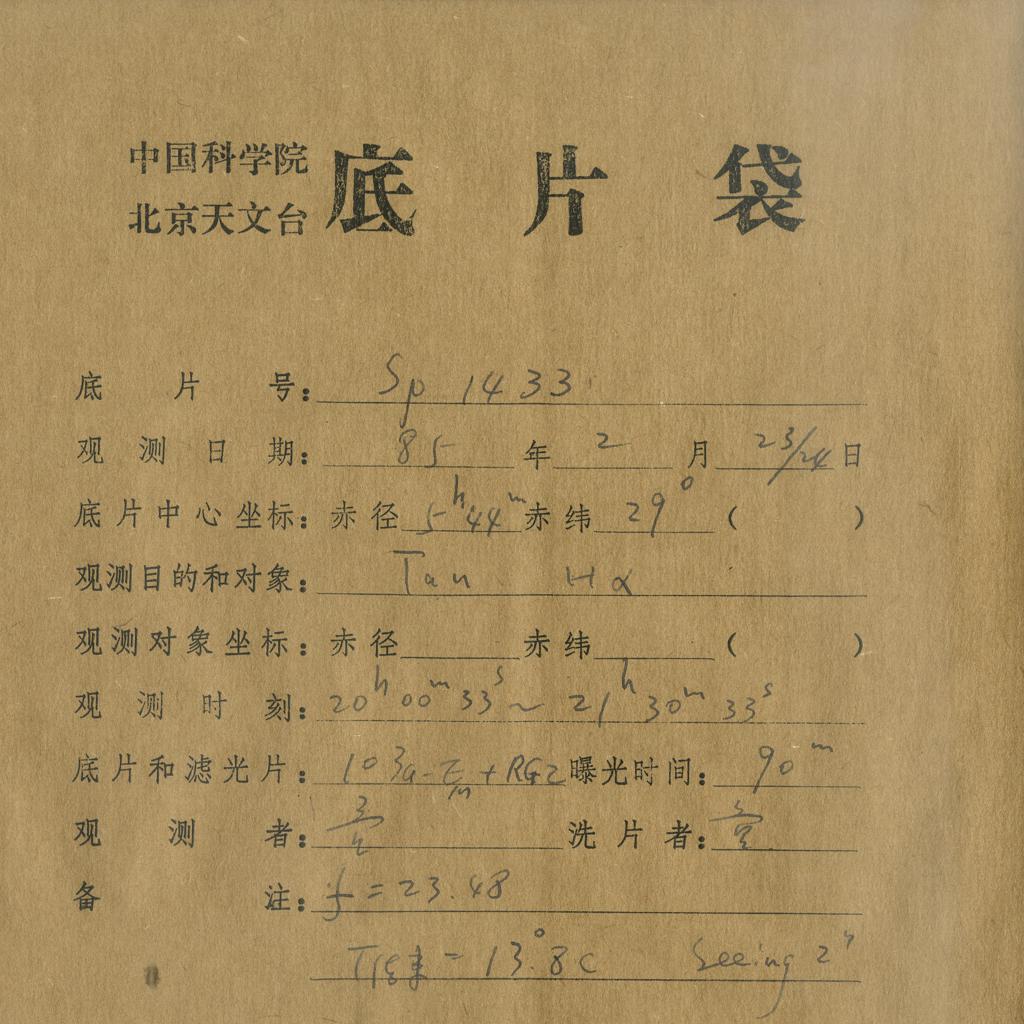 中国科学院
北京天文台
底片袋
底片号: Sp 1433
观测日期: 85年2月23/24日
底片中心坐标: 赤径 5h44m 赤纬 29° ( )
观测目的和对象: Tau Hα
观测对象坐标: 赤径 赤纬 ( )
观测时刻: 20h00m33s ~ 21h30m33s
底片和滤光片: 103a-E + RG2 曝光时间: 90m
观测者: 洗片者:
备注: f = 23.48
= 13°.8C Seeing 2"